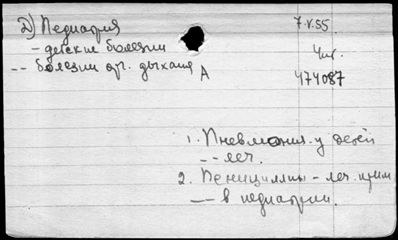 Д) Педиатрия
7.V.55.
- детские болезни
Чит.
-- болезни ор. дыхания
А
474087
1. Пневмония у детей
-- леч.
2. Пенициллин - леч. прим.
-- в педиатрии.